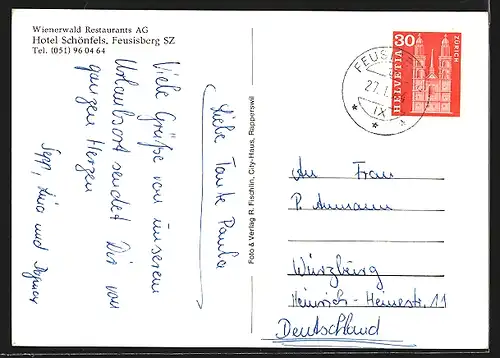 Wienerwald Restaurants AG
Hotel Schönfels, Feusisberg SZ
Tel. (051) 96 04 64
Liebe Tante Paula
Viele Grüße von unserem
Urlaubsort sendet Dir von
ganzen Herzen
Sepp, und
Foto & Verlag R. Fischlin, City-Haus, Rapperswil
30
HELVETIA
ZÜRICH
FEUS
27.
IX
An Frau
P. Ammann
Würzburg
Heinrich-Heinestr. 11
Deutschland